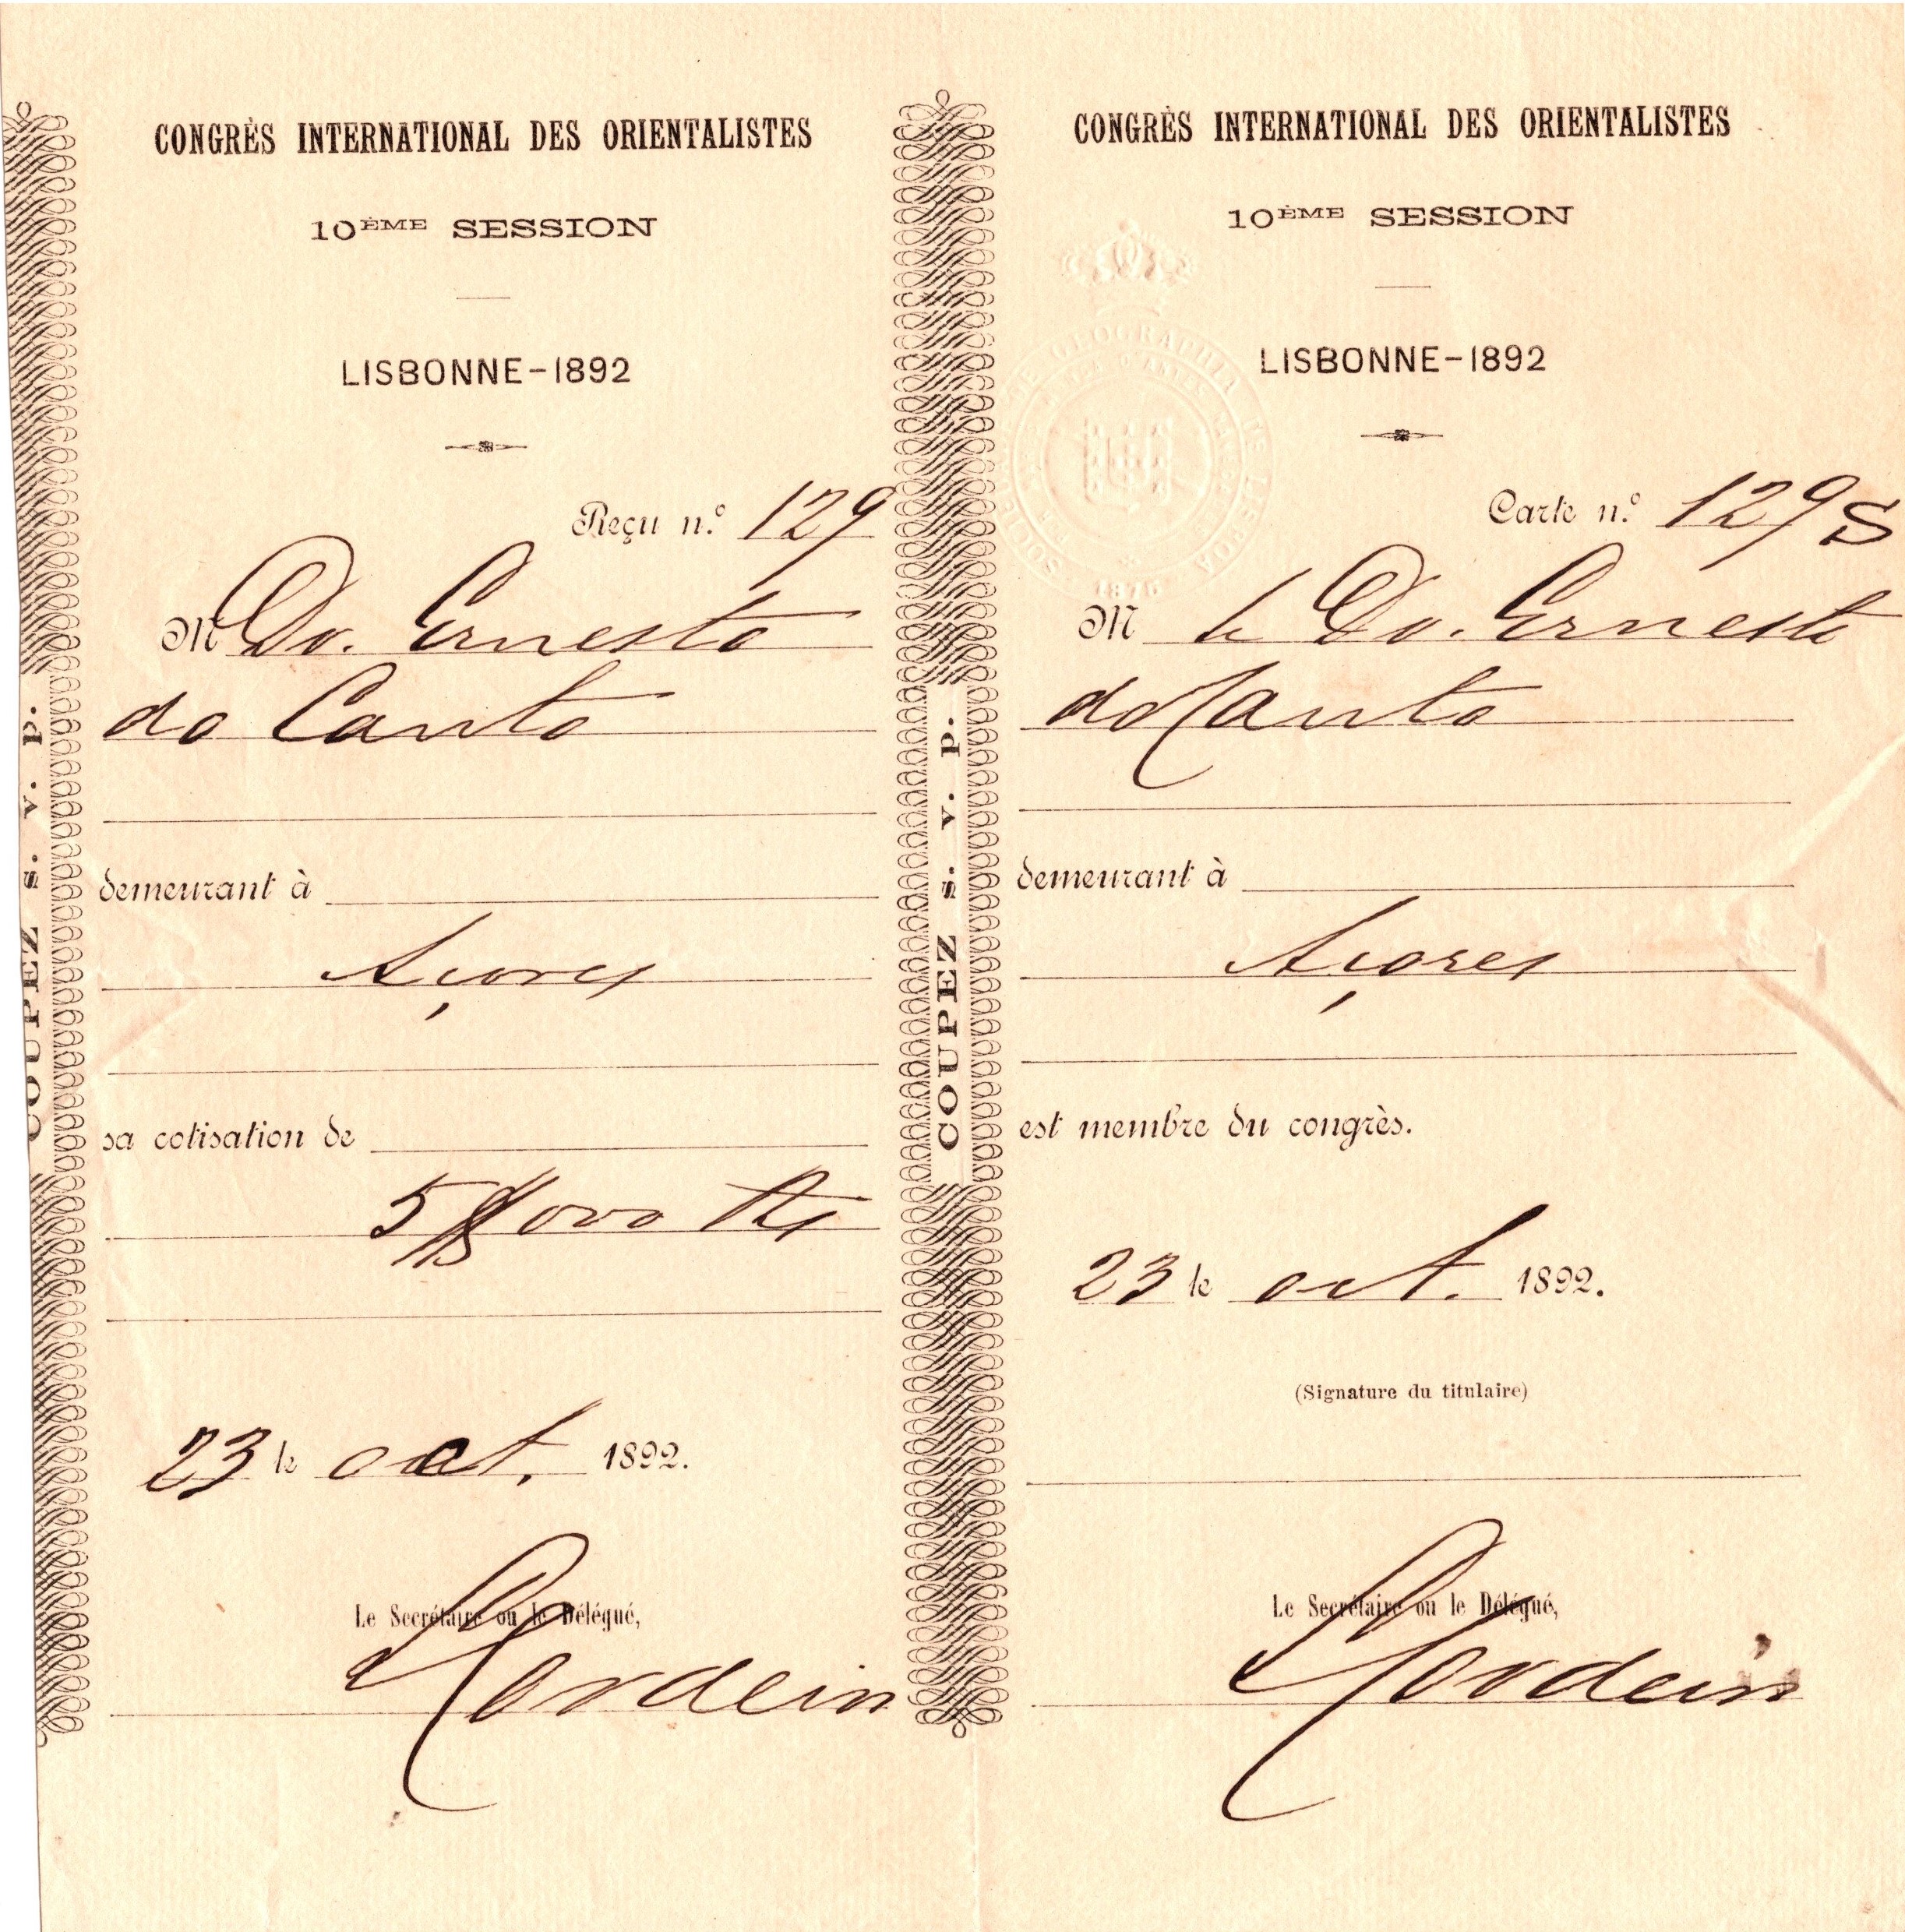 CONGRÈS INTERNATIONAL DES ORIENTALISTES
10ÈME SESSION
LISBONNE-1892
Reçu n.º 129
M Dr. Ernesto
do Canto
demeurant à
Açores
sa cotisation de
5$000 Rs
23 le oct. 1892.
Le Secrétaire ou le Délégué,
Cordein
COUPEZ S. V. P.
COUPEZ S. V. P.
CONGRÈS INTERNATIONAL DES ORIENTALISTES
10ÈME SESSION
LISBONNE-1892
SOCIEDADE DE GEOGRAPHIA DE LISBOA
1875
Carte n.º 129 S
M le Dr. Ernesto
do Canto
demeurant à
Açores
est membre du congrès.
23 le oct. 1892.
(Signature du titulaire)
Le Secrétaire ou le Délégué,
Cordein